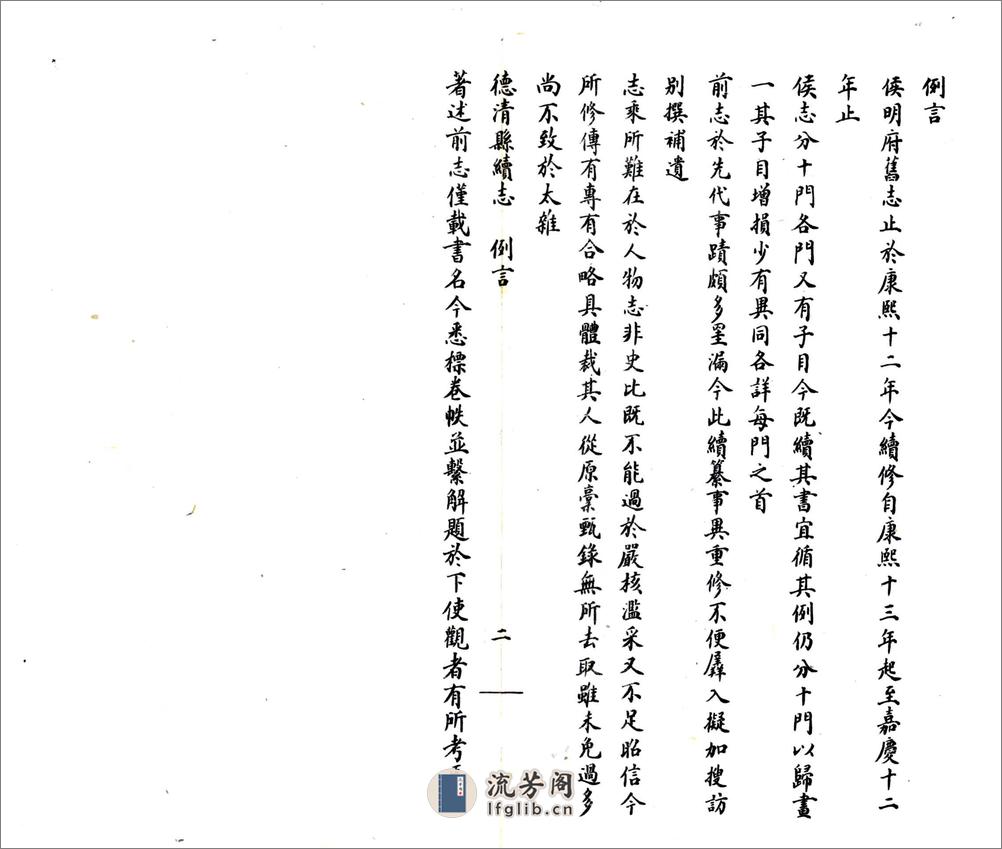 例言
侯明府舊志止於康熙十二年今續修自康熙十三年起至嘉慶十二
年止
侯志分十門各門又有子目今既續其書宜循其例仍分十門以歸畫
一其子目增損少有異同各詳每門之首
前志於先代事蹟頗多罣漏今此續纂事異重修不便羼入擬加搜訪
別撰補遺
志乘所難在於人物志非史比既不能過於嚴核濫采又不足昭信今
所修傳有專有合略具體裁其人從原稾甄錄無所去取雖未免過多
尚不致於太雜
德清縣續志 例言 二
著述前志僅載書名今悉標卷帙並繫解題於下使觀者有所考
流芳阁
lfglib.cn